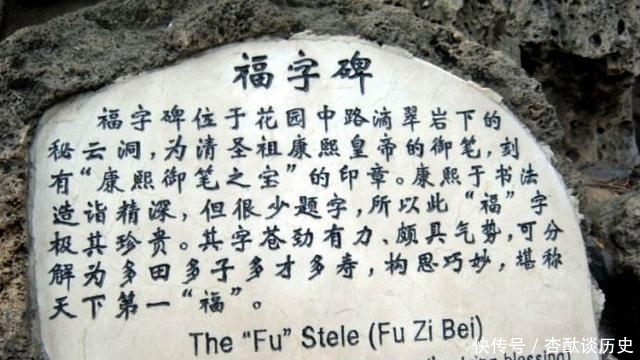 福字碑
福字碑位于花园中路滴翠岩下的
秘云洞，为清圣祖康熙皇帝的御笔，刻
有“康熙御笔之宝”的印章。康熙于书法
造诣精深，但很少题字，所以此“福”字
极其珍贵。其字苍劲有力、颇具气势，可分
解为多田多子多才多寿，构思巧妙，堪称
天下第一“福”。
The “Fu” Stele (Fu Zi Bei)
blessing)
快传号／杏酞谈历史